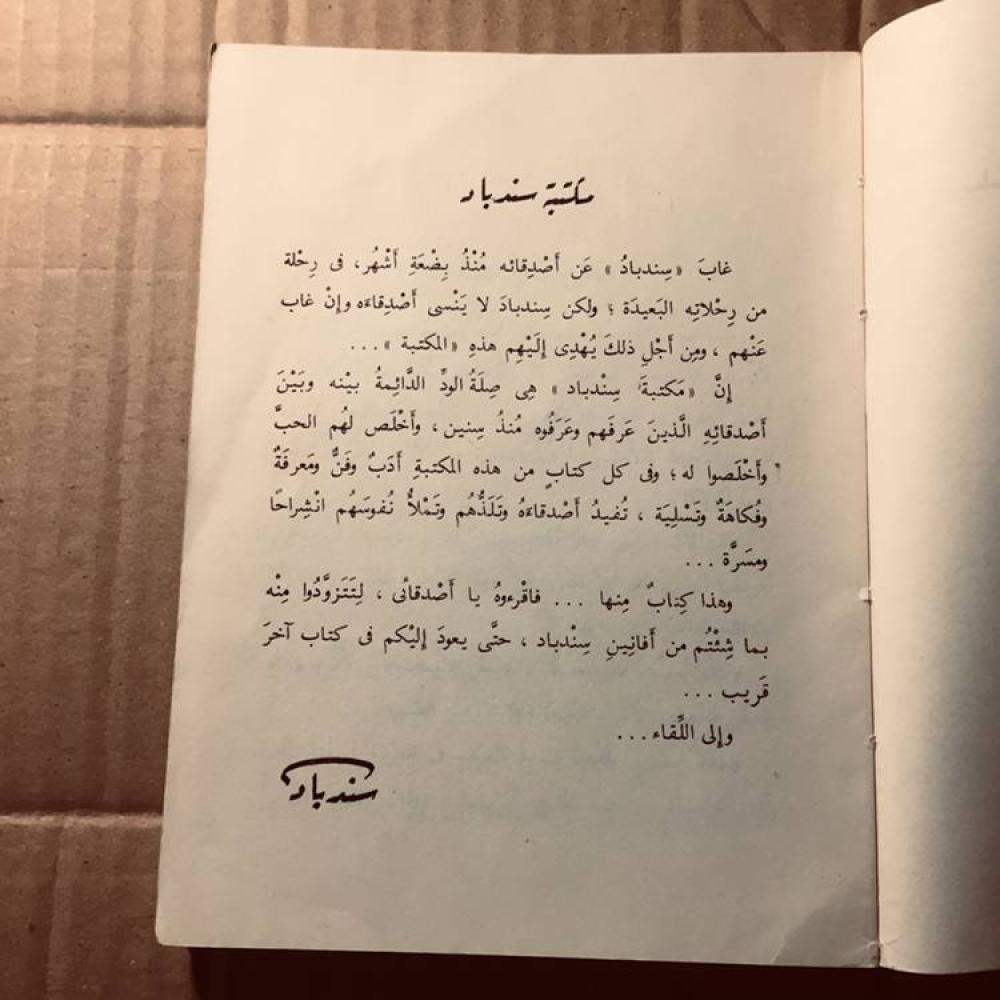 مكتبة سندباد
غابَ «سِندبادُ» عَن أَصْدِقائه مُنْذُ بِضْعَةِ أَشْهُر، فى رِحْلة
من رِحْلاتِه البَعيدَة ؛ ولكن سِندبادَ لا يَنْسى أَصْدِقاءَه وإنْ غاب
عَنْهم ، ومِن أَجْلِ ذلكَ يُهْدِى إلَيْهِم هذهِ «المكتبة» ...
إنَّ «مَكتبةَ سِنْدباد» هِى صِلَةُ الودِّ الدَّائِمةُ بيْنه وبَيْنَ
أَصْدقائهِ الَّذينَ عَرفَهم وعَرَفُوه مُنذُ سِنين ، وأَخْلَص لهُم الحبَّ
وأَخْلَصوا له ؛ وفى كل كتابٍ من هذه المكتبةِ أَدَبٌ وفَنٌّ ومَعرفَةٌ
وفُكاهَةٌ وتَسْلِيَة ، تُفيدُ أَصْدقاءَهُ وتَلَذُّهُم وتَمْلأُ نُفوسَهُم انْشِراحًا
ومسَرَّة ...
وهذا كِتابٌ مِنها ... فاقْرءوهُ يا أَصْدقائى ، لِتَتَزوَّدُوا مِنْه
بما شِئْتُم من أَفانِينِ سِنْدباد ، حتَّى يعودَ إلَيْكم فى كتاب آخرَ
قَريب ...
وإلى اللِّقاء ...
سندباد